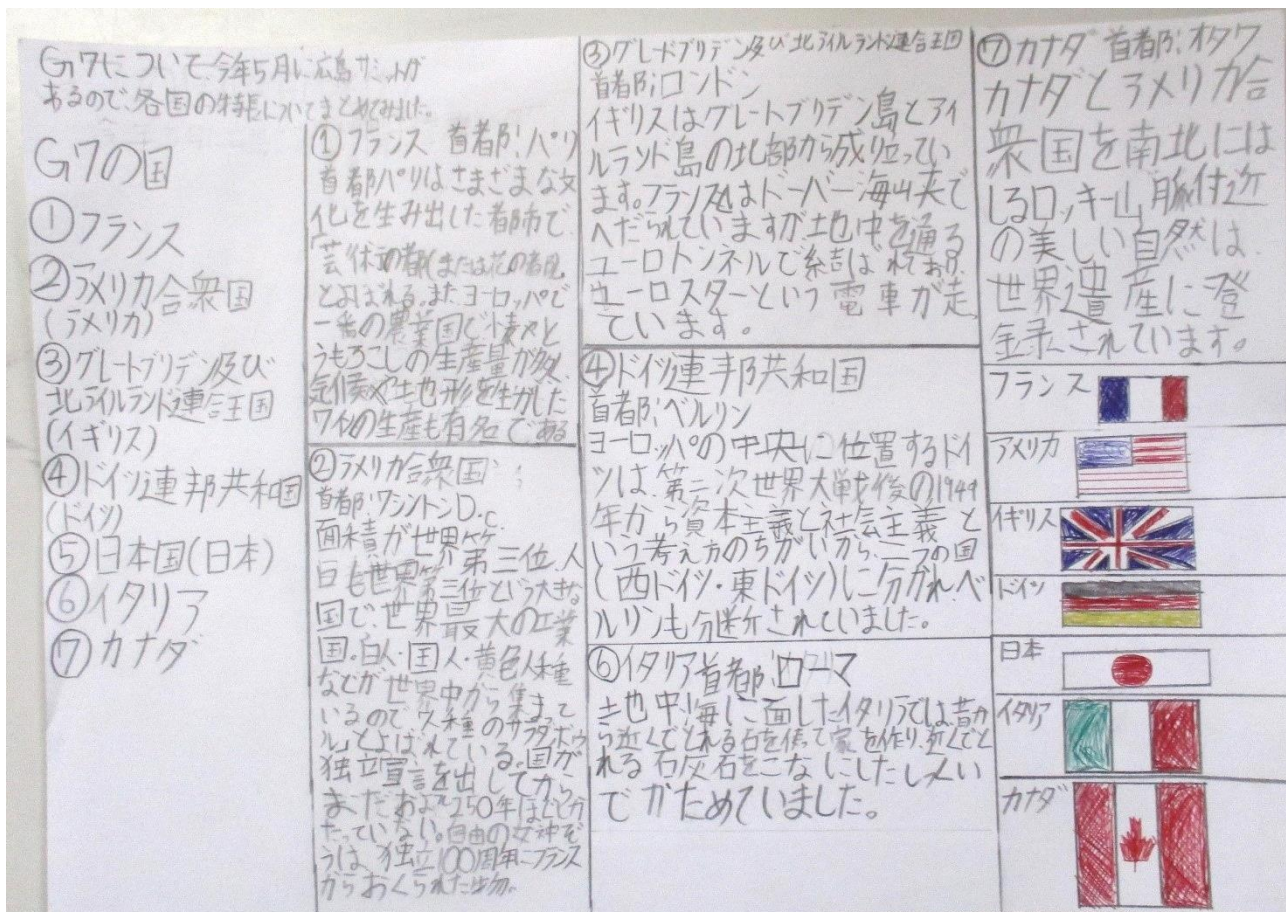 G7について、今年5月に広島サミットが
あるので、各国の特長についてまとめてみました。
G7の国
①フランス
②アメリカ合衆国
(アメリカ)
③グレートブリデン及び
北アイルランド連合王国
(イギリス)
④ドイツ連邦共和国
(ドイツ)
⑤日本国(日本)
⑥イタリア
⑦カナダ
①フランス 首都:パリ
首都パリはさまざまな文
化を生み出した都市で、
「芸術の都(または花の都)」
とよばれる。また、ヨーロッパで
一番の農業国で小麦やと
うもろこしの生産量が多く、
気候や土地形を生かした
ワインの生産も有名である
②アメリカ合衆国
首都:ワシントンD.C.
面積が世界第三位、人
口も世界第三位という大きな
国で、世界最大の工業
国。白人・国人・黄色人種
などが世界中から集まって
いるので「人種のサラダボウ
ル」とよばれている。国が
独立宣言を出してから
まだおよそ250年ほどしか
たっていない。自由の女神ぞ
うは、独立100周年にフランス
からおくられた生物。
③グレートブリデン及び北アイルランド連合王国
首都:ロンドン
イギリスはグレートブリデン島とアイ
ルランド島の北部から成り立ってい
ます。フランスとはドーバー海峡で
へだられていますが土地中を通る
ユーロトンネルで結ばれており、
ユーロスターという電車が走っ
ています。
④ドイツ連邦共和国
首都:ベルリン
ヨーロッパの中央に位置するドイ
ツは、第二次世界大戦後の1949
年から資本主義と社会主義と
いう考え方のちがいから、二つの国
(西ドイツ・東ドイツ)に分かれ、ベ
ルリンも分断されていました。
⑥イタリア首都:ローマ
土地中海に面したイタリアでは、昔か
ら近くでとれる石を使って家を作り、近くでと
れる石灰石をこなにしたしっくい
でかためていました。
⑦カナダ 首都:オタワ
カナダとアメリカ合
衆国を南北には
しるロッキー山脈付近
の美しい自然は、
世界遺産に登
録されています。
フランス
アメリカ
イギリス
ドイツ
日本
イタリア
カナダ